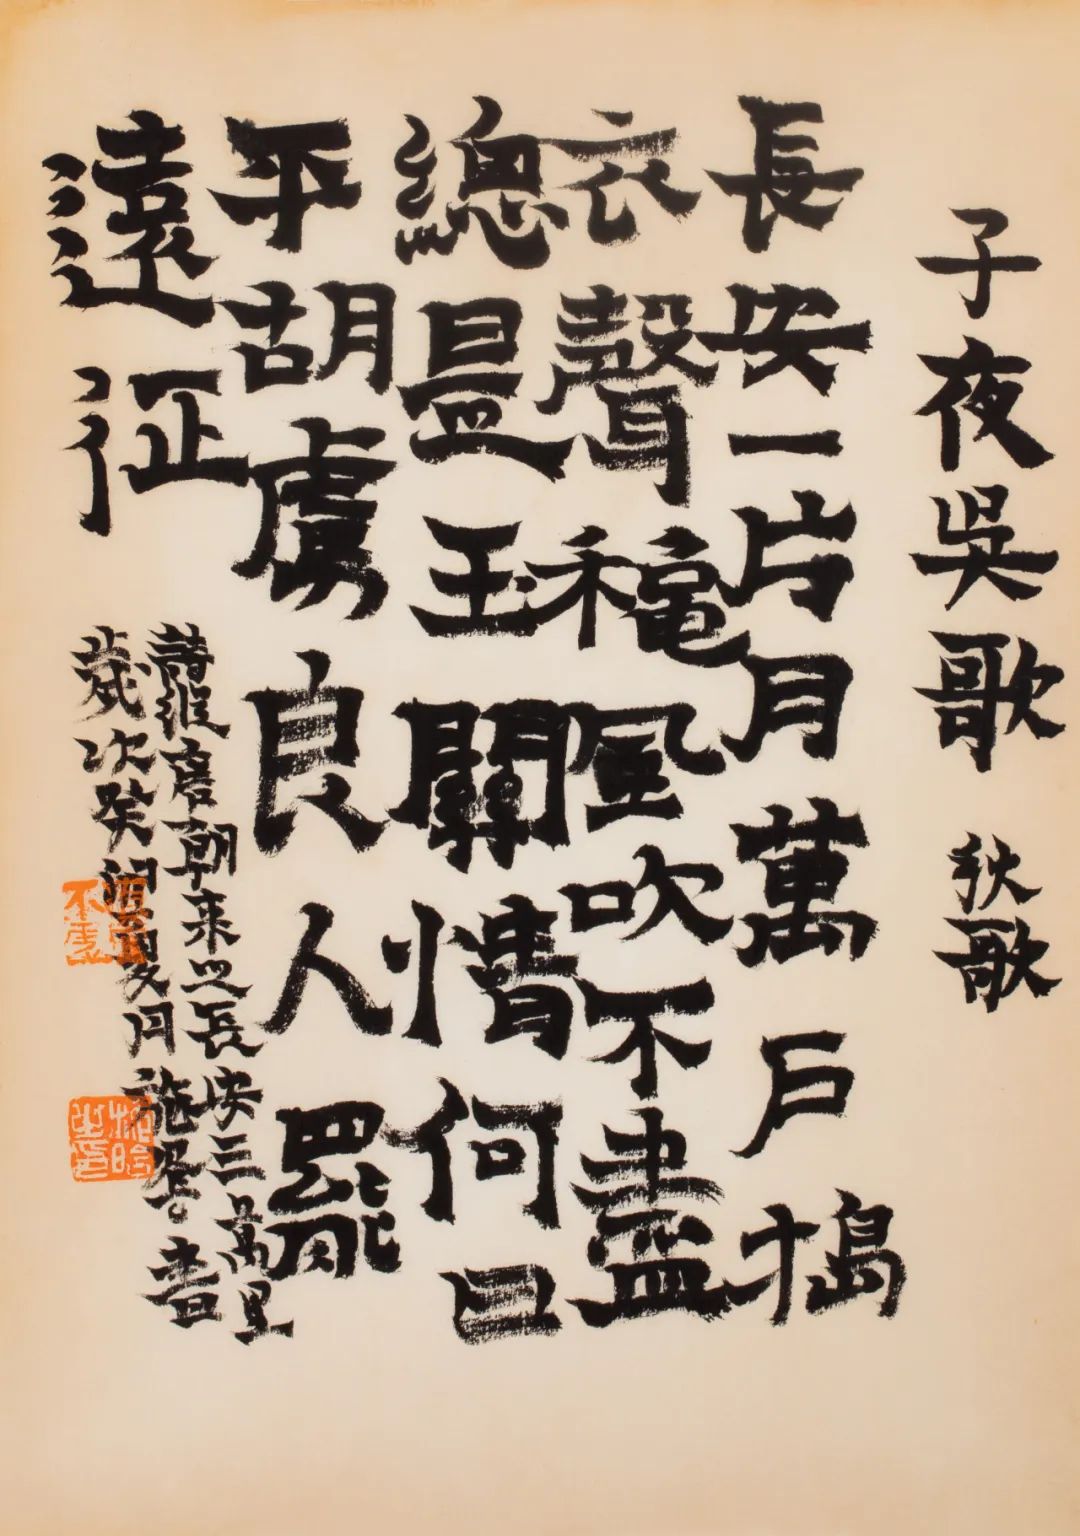 子夜吳歌 秋歌
長安一片月萬戶搗
衣聲穐風吹不盡
總是玉關情何日
平胡虜良人罷
遠征
詩從唐朝來之長安三萬里
歲次癸卯 月 書